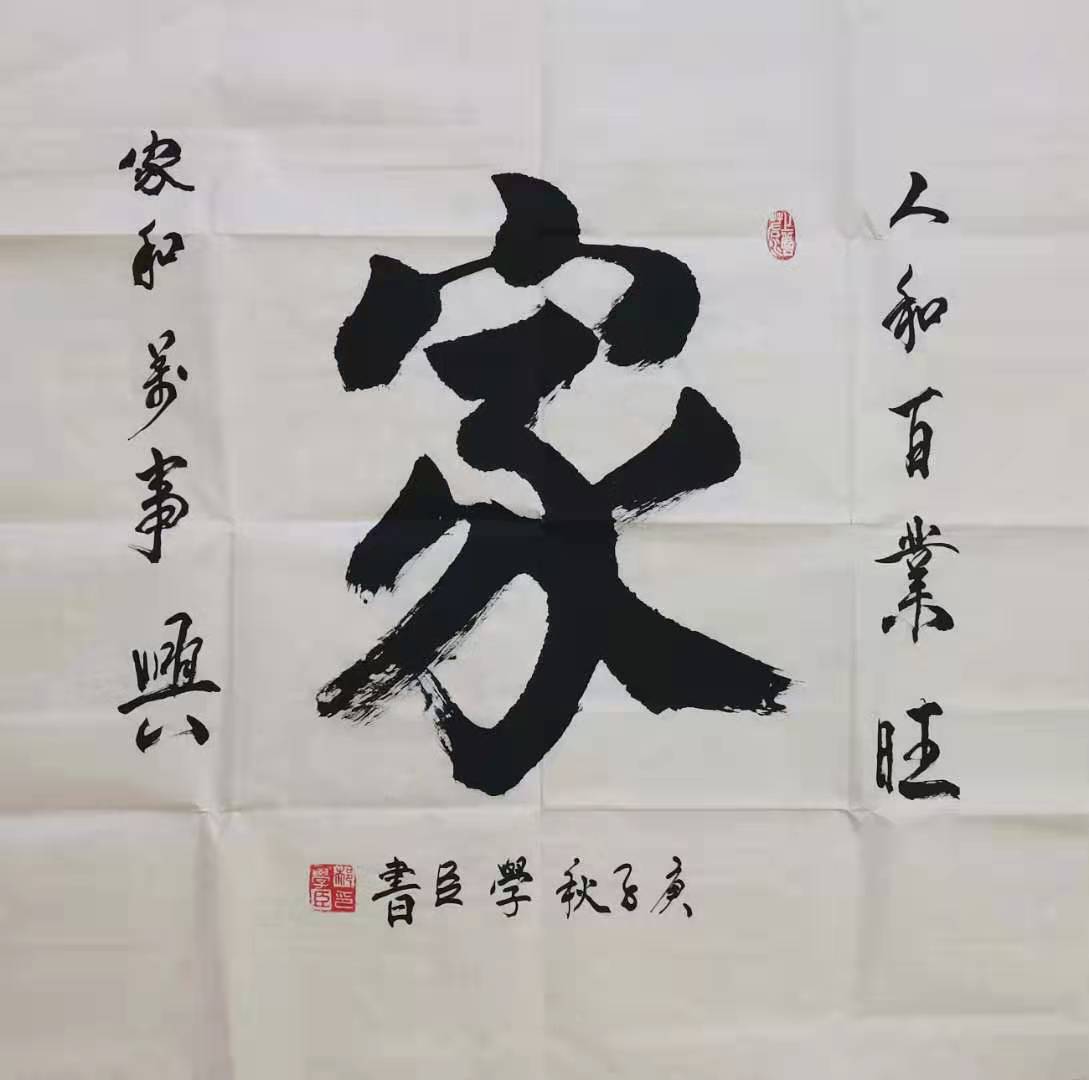 人和百業旺
家
家和萬事興
庚子秋學臣書